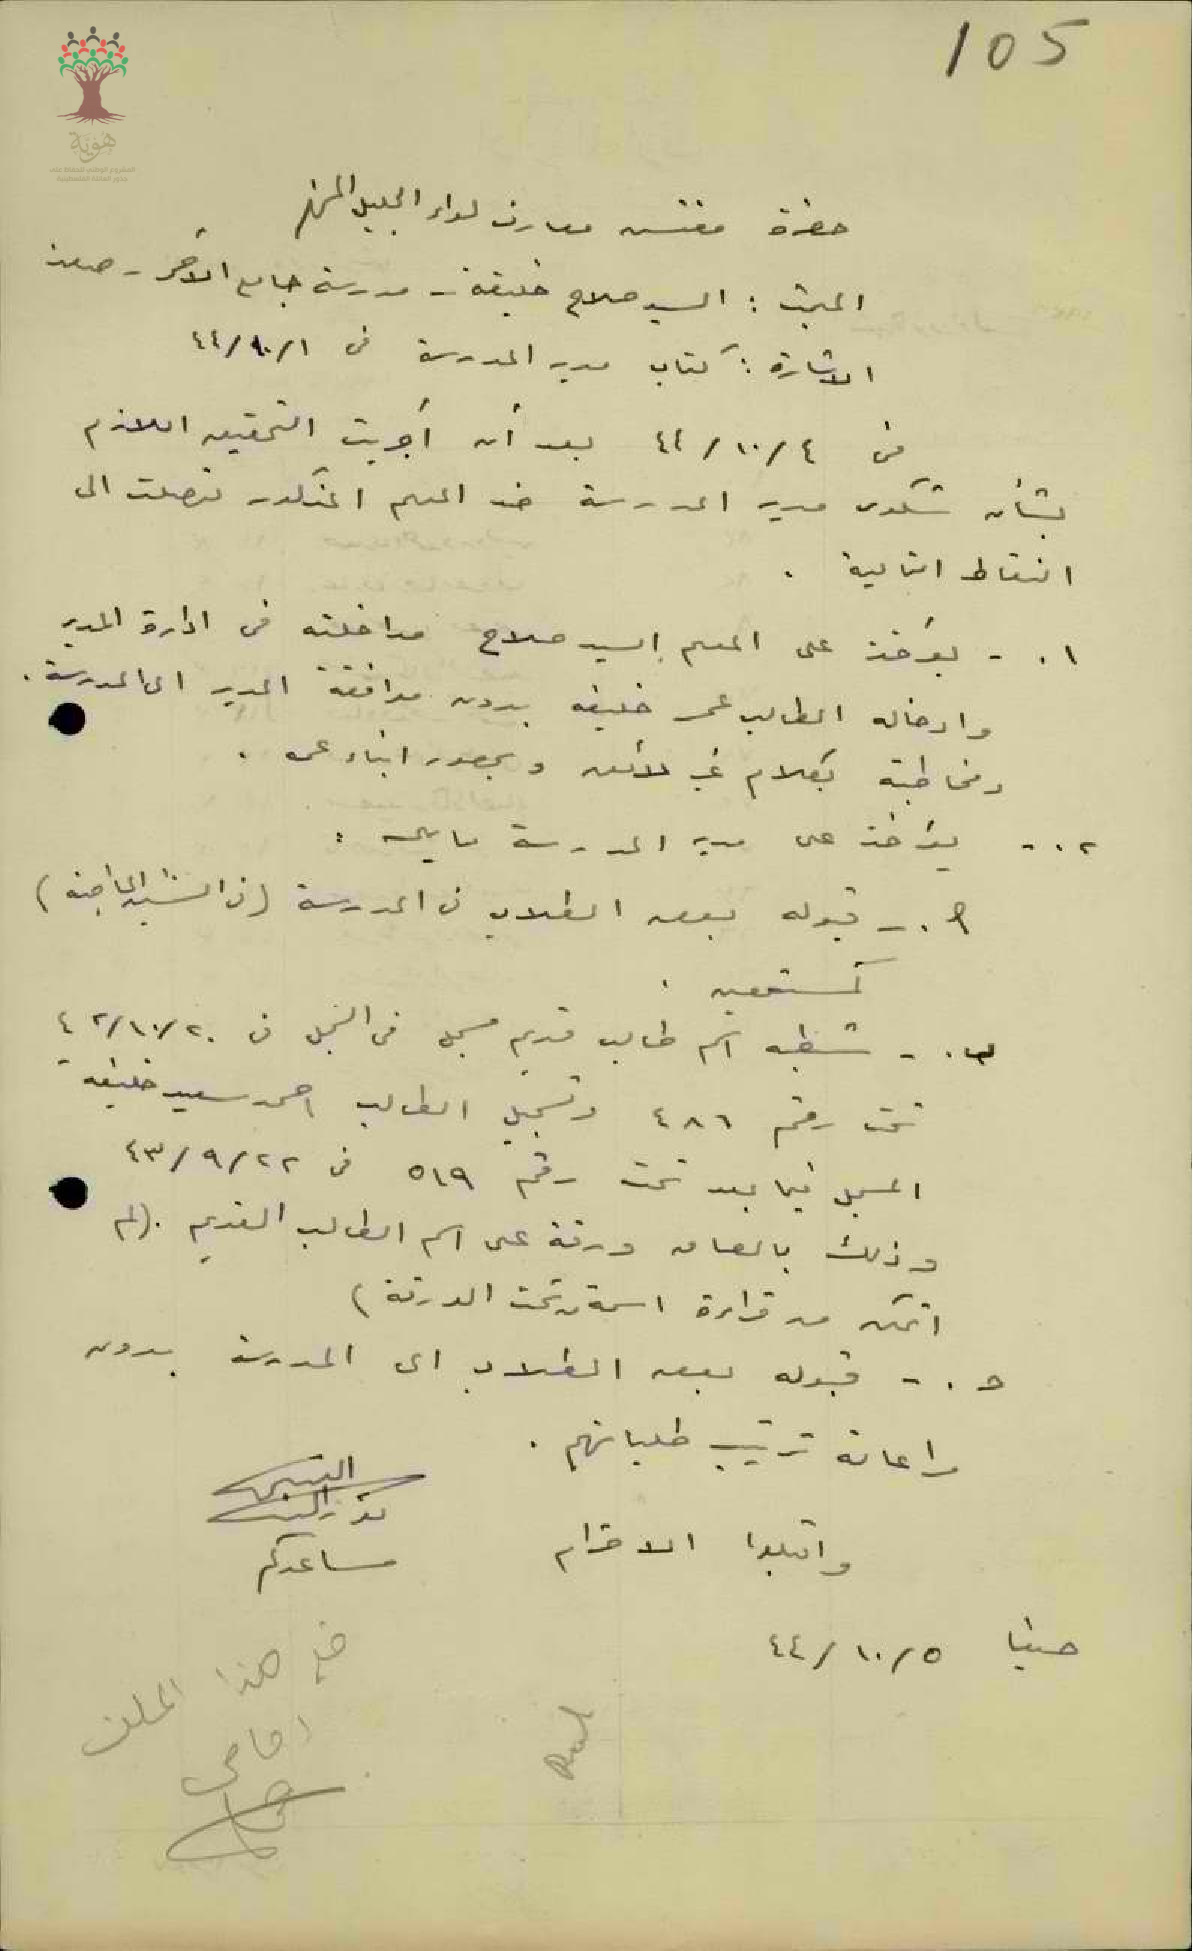 105
هوية
حضرة مفتش معارف لواء الجليل المحترم
المبحث : السيد صلاح خليفة - مدرسة جامع الأحمر - صفد
الاشارة : كتاب مدير المدرسة في ٤٤/١٠/١
في ٤٤/١٠/٤ بعد أن أجريت التحقيق اللازم
بشأن شكوى مدير المدرسة ضد المعلم المذكور توصلت الى
النقاط التالية .
١. - يؤخذ على المعلم السيد صلاح مداخلته في ادارة المدير
وادخاله الطالب عمر خليفه بدون موافقة المدير الى المدرسة.
ومخاطبته بكلام غير لائق وبحضور ابناء عمه .
٢. - يؤاخذ على مدير المدرسة ما يلي :
أ. - قبوله بعض الطلاب في المدرسة
كمستمعين .
ب. - شطبه اسم طالب قديم مسجل في السجل في ٤٢/١٠/٢٠
تحت رقم ٤٨٦ وتسجيل الطالب احمد سعيد خليفة
المسجل فيما بعد تحت رقم ٥١٩ في ٤٣/٩/٢٢
وذلك بالصاق ورقة على اسم الطالب القديم . (لم
اتمكن من قراءة اسمه تحت الورقة)
ج. - قبوله بعض الطلاب الى المدرسة بدون
مراعاة ترتيب طلباتهم .
واقبلوا الاحترام
مساعدكم
صفد ٤٤/١٠/٥
ضع هذا الملف
امامي